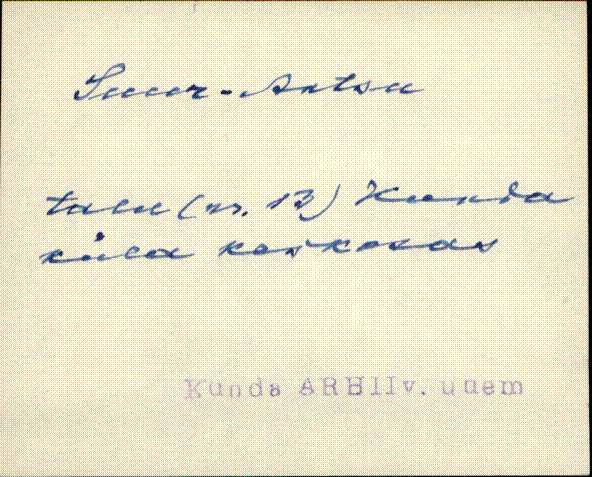 Suur-Antsu
talu (nr. 13) Kunda
küla keskosas
Kunda ARHIIV. unem